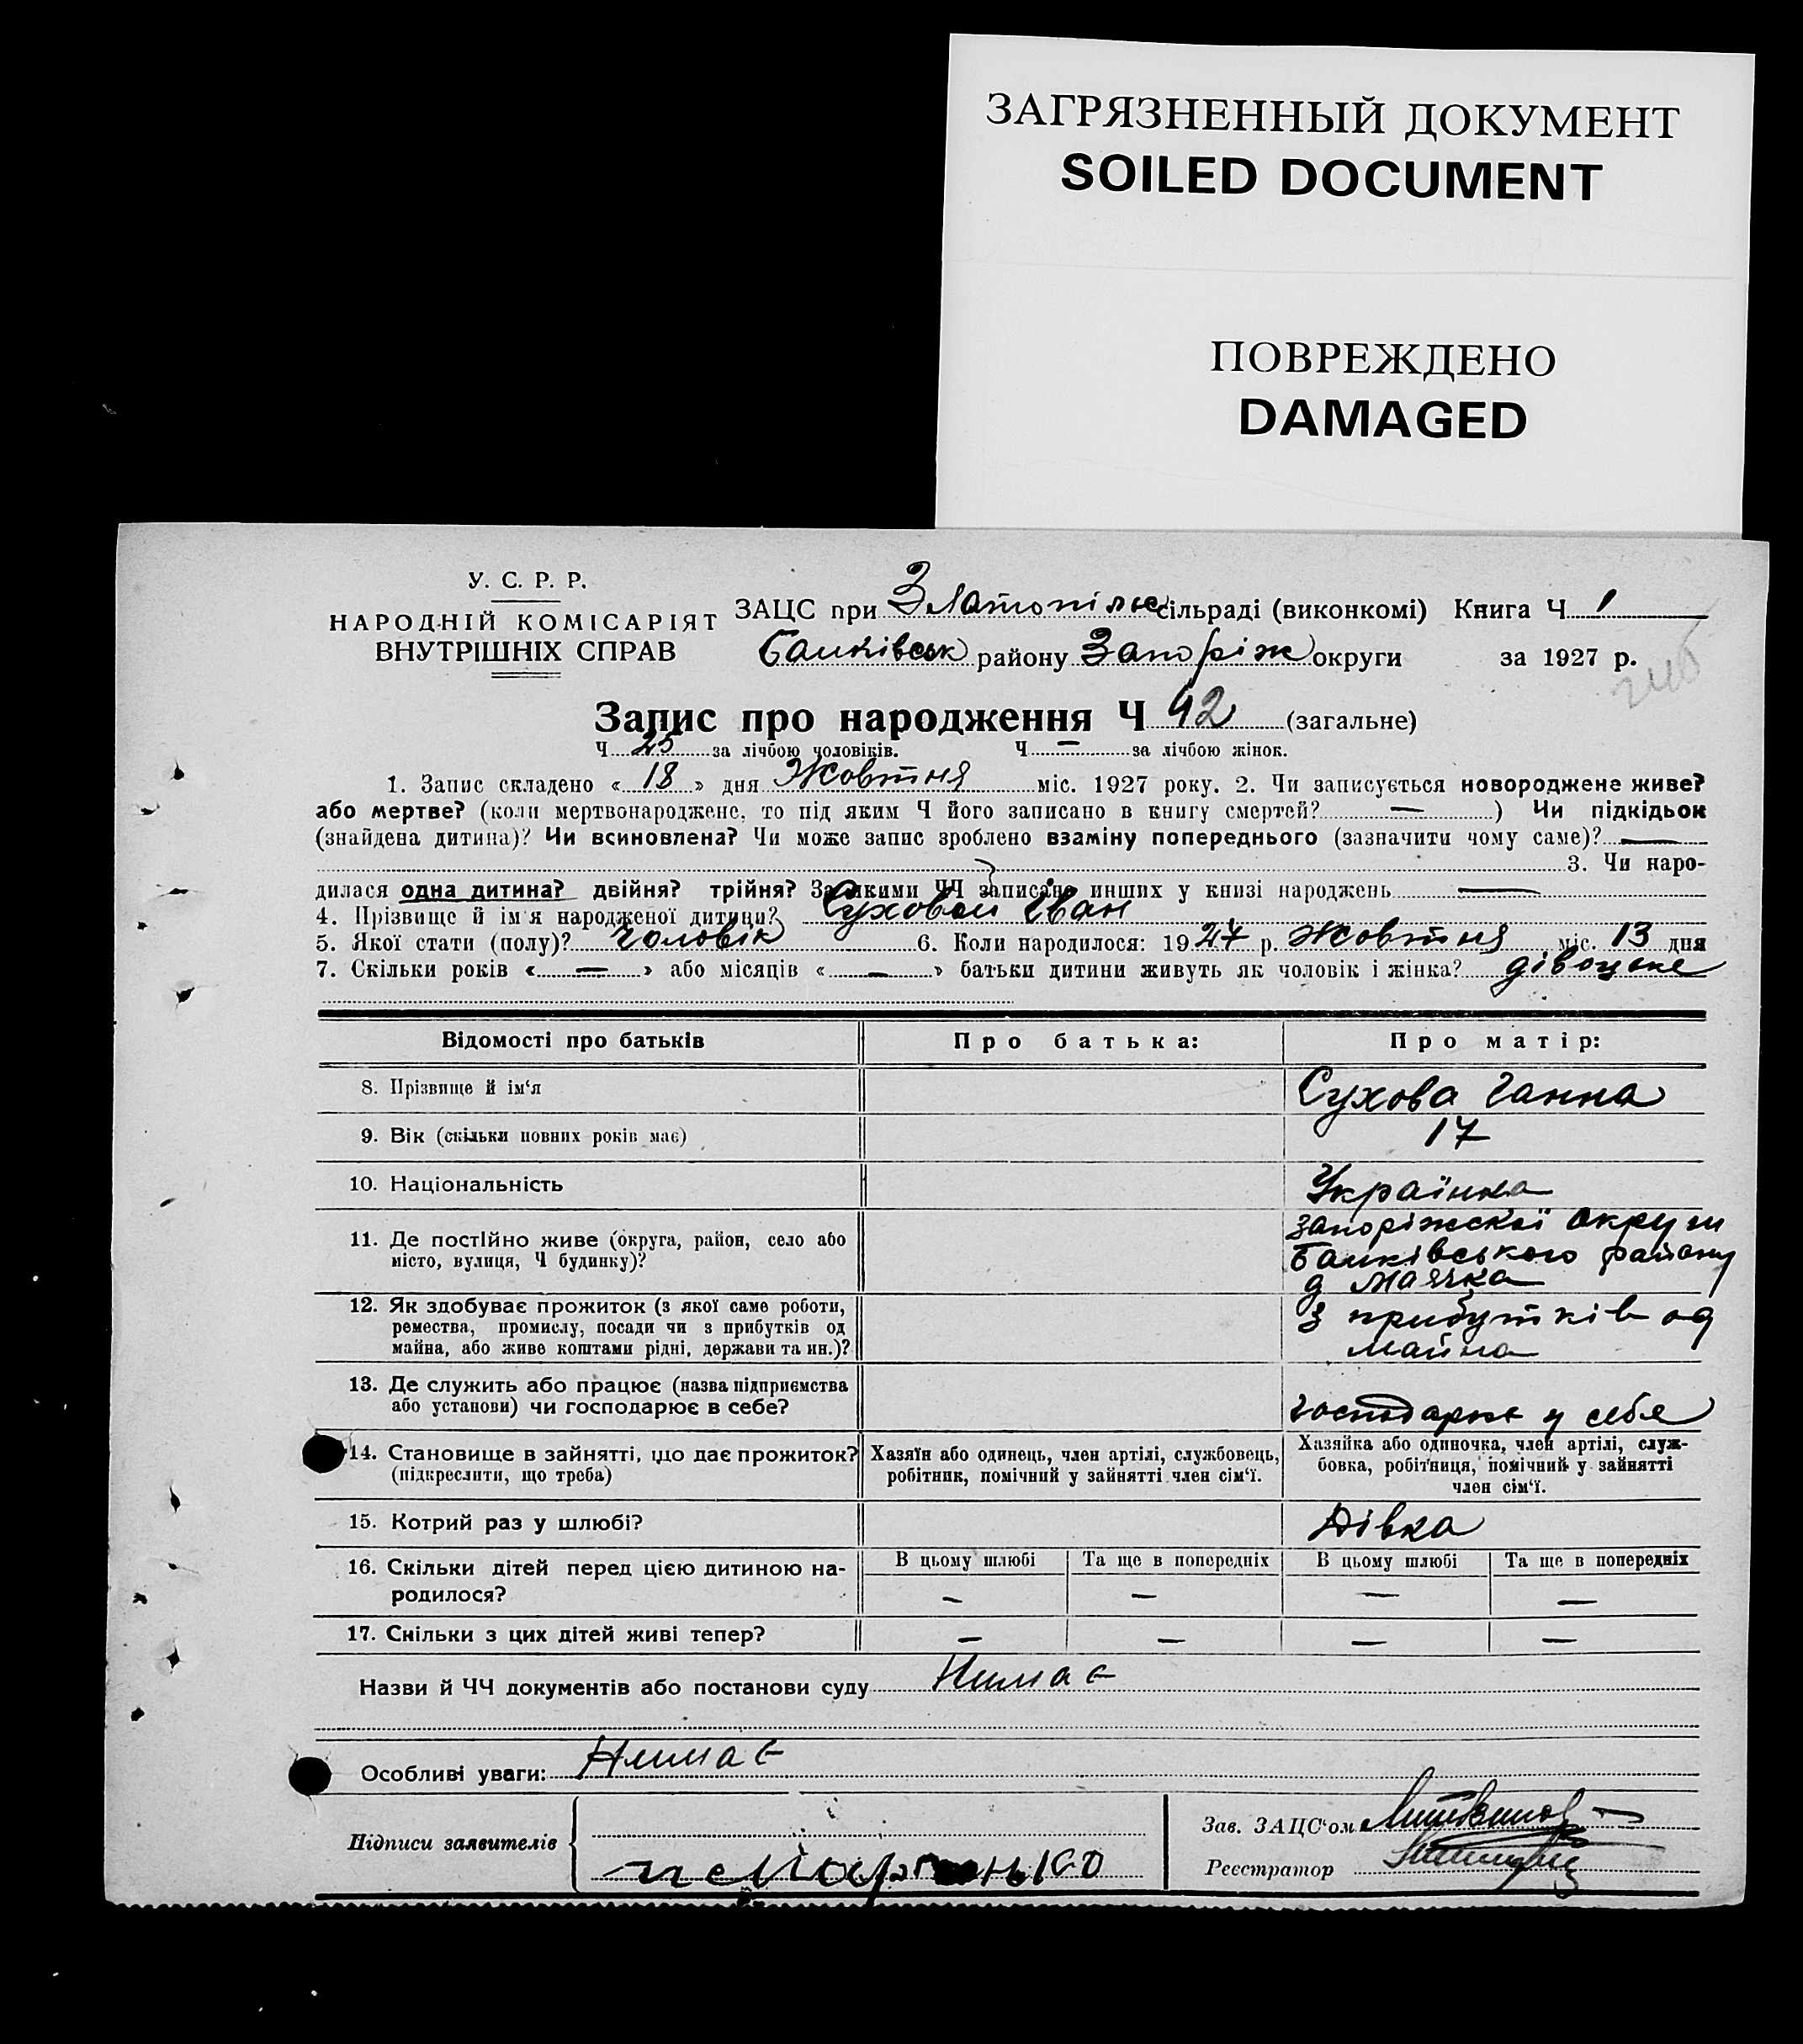 ЗАГРЯЗНЕННЫЙ ДОКУМЕНТ
SOILED DOCUMENT
ПОВРЕЖДЕНО
DAMAGED
У. С. Р. Р.
НАРОДНІЙ КОМІСАРІЯТ
ВНУТРІШНІХ СПРАВ
ЗАЦС при Златопільс сільраді (виконкомі) Книга Ч 1
Балківськ району Запоріж округи за 1927 р.
Запис про народження Ч 42 (загальне)
Ч 25 за лічбою чоловіків. Ч — за лічбою жінок.
1. Запис складено « 18 » дня Жовтня міс. 1927 року. 2. Чи записується новороджене живе?
або мертве? (коли мертвонароджене, то під яким Ч його записано в книгу смертей? — ) Чи підкідьок
(знайдена дитина)? Чи всиновлена? Чи може запис зроблено взаміну попереднього (зазначити чому саме)? —
3. Чи наро-
дилася одна дитина? двійня? трійня? За якими ЧЧ записано инших у книзі народжень —
4. Прізвище й ім'я народженої дитини? Суховой Іван
5. Якої стати (полу)? Чоловік 6. Коли народилося: 1927 р. Жовтня міс. 13 дня
7. Скільки років « — » або місяців « — » батьки дитини живуть як чоловік і жінка? дівоцьке
Відомості про батьків Про батька: Про матір:
8. Прізвище й ім'я Сухова Ганна
9. Вік (скільки повних років має) 17
10. Національність Українка
11. Де постійно живе (округа, район, село або
місто, вулиця, Ч будинку)?
Запоріжської округи
Балківського району
д Маячка
12. Як здобуває прожиток (з якої саме роботи,
ремества, промислу, посади чи з прибутків од
майна, або живе коштами рідні, держави та ин.)?
З прибутків од
майна
13. Де служить або працює (назва підприємства
або установи) чи господарює в себе?
господарює у себя
14. Становище в зайнятті, що дає прожиток?
(підкреслити, що треба)
Хазяїн або одинець, член артілі, службовець,
робітник, помічний у зайнятті член сім'ї.
Хазяйка або одиночка, член артілі, служ-
бовка, робітниця, помічний у зайнятті
член сім'ї.
15. Котрий раз у шлюбі? Дівка
16. Скільки дітей перед цією дитиною на-
родилося?
В цьому шлюбі Та ще в попередніх В цьому шлюбі Та ще в попередніх
— — — —
17. Скільки з цих дітей живі тепер? — — — —
Назви й ЧЧ документів або постанови суду Нимає
Особливі уваги: Нимає
Підписи заявителів
Зав. ЗАЦС'ом
Реєстратор